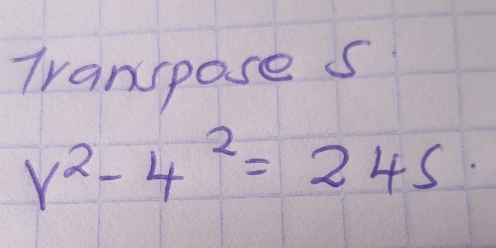 Transpose S.
V² - 4² = 24S.